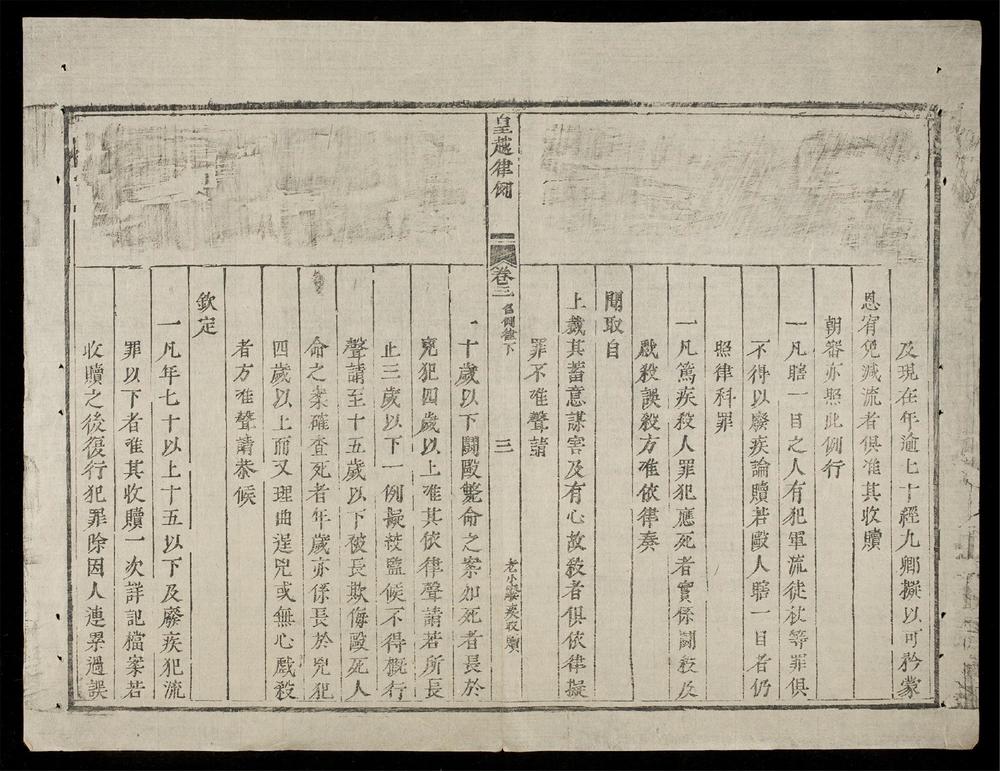 及現在年逾七十經九卿擬以可矜蒙
恩宥免減流者俱准其收贖
朝審亦照此例行
一凡瞎一目之人有犯軍流徒杖等罪俱
不得以廢疾論贖若毆人瞎一目者仍
照律科罪
一凡篤疾殺人罪犯應死者實係鬪殺及
戲殺誤殺方准依律奏
聞取自
上裁其蓄意謀害及有心故殺者俱依律擬
罪不准聲請
皇越律例
卷三
名例律下
三
老小廢疾收贖
一十歲以下鬪毆斃命之案如死者長於
兇犯四歲以上准其依律聲請若所長
止三歲以下一例擬絞監候不得概行
聲請至十五歲以下被長欺侮毆死人
命之案確查死者年歲亦係長於兇犯
四歲以上而又理曲逞兇或無心戲殺
者方准聲請恭候
欽定
一凡年七十以上十五以下及廢疾犯流
罪以下者准其收贖一次詳記檔案若
收贖之後復行犯罪除因人連累過誤